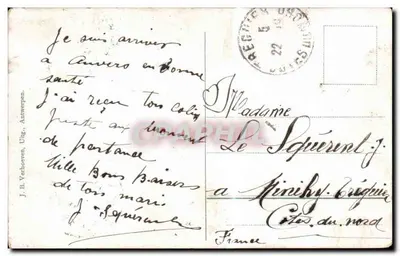 Je suis arriver
a Anvers en bonne
santé
J'ai reçu ton colis
juste au moment
de partance
Mille Bons Baisers
de ton mari
J Squérent
J. B. Verhoeven, Uitg., Antwerpen.
5
22
Madame
Le Squérent J.
a Minihy Tréguier
Côtes du nord
France